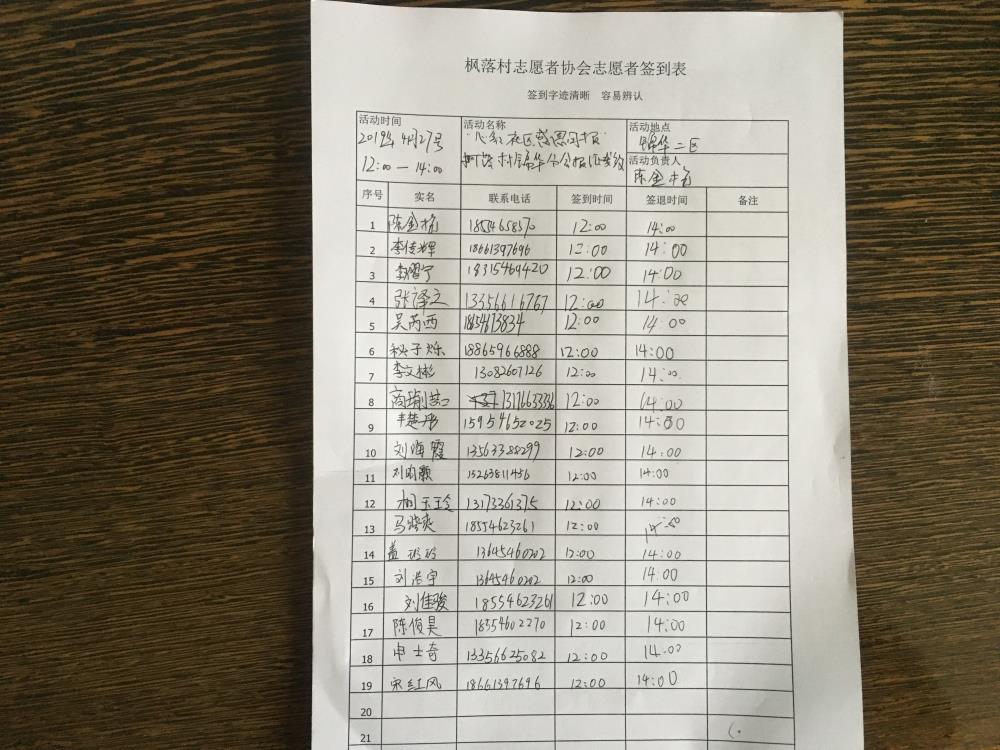 枫落村志愿者协会志愿者签到表
签到字迹清晰 容易辨认
活动时间 活动名称 活动地点
2019年4月27号 社区感恩回报 锦华二区
12:00 — 14:00 活动负责人
序号 实名 联系电话 签到时间 签退时间 备注
1 陈金梅 18554658570 12:00 14:00
2 李传辉 18661397696 12:00 14:00
3 18315469420 12:00 14:00
4 张译之 13356616767 12:00 14:00
5 吴芮西 12:00 14:00
6 子烁 18865966888 12:00 14:00
7 李文彬 13082607126 12:00 14:00
8 12:00 14:00
9 楚丹 15954652025 12:00 14:00
10 刘海霞 13563388299 12:00 14:00
11 刘 15263811456 12:00 14:00
12 玉玲 13173361375 12:00 14:00
13 马晓爽 18554623261 12:00 14:00
14 盖玲玲 13645460202 12:00 14:00
15 刘浩宇 13645460202 12:00 14:00
16 刘佳骏 18554623261 12:00 14:00
17 陈俊昊 18554602270 12:00 14:00
18 申士奇 13356625082 12:00 14:00
19 宋红风 18661397696 12:00 14:00
20
21